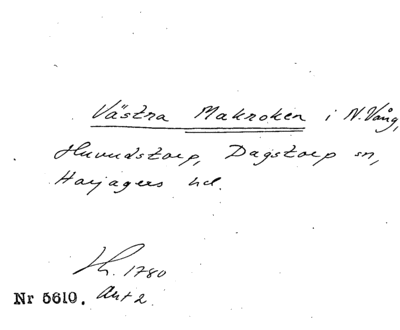 Västra Makroken i N. Vång,
Huvudstorp, Dagstorp sn,
Harjagers hd.
Kh. 1780
Nr 5610. Akt 2